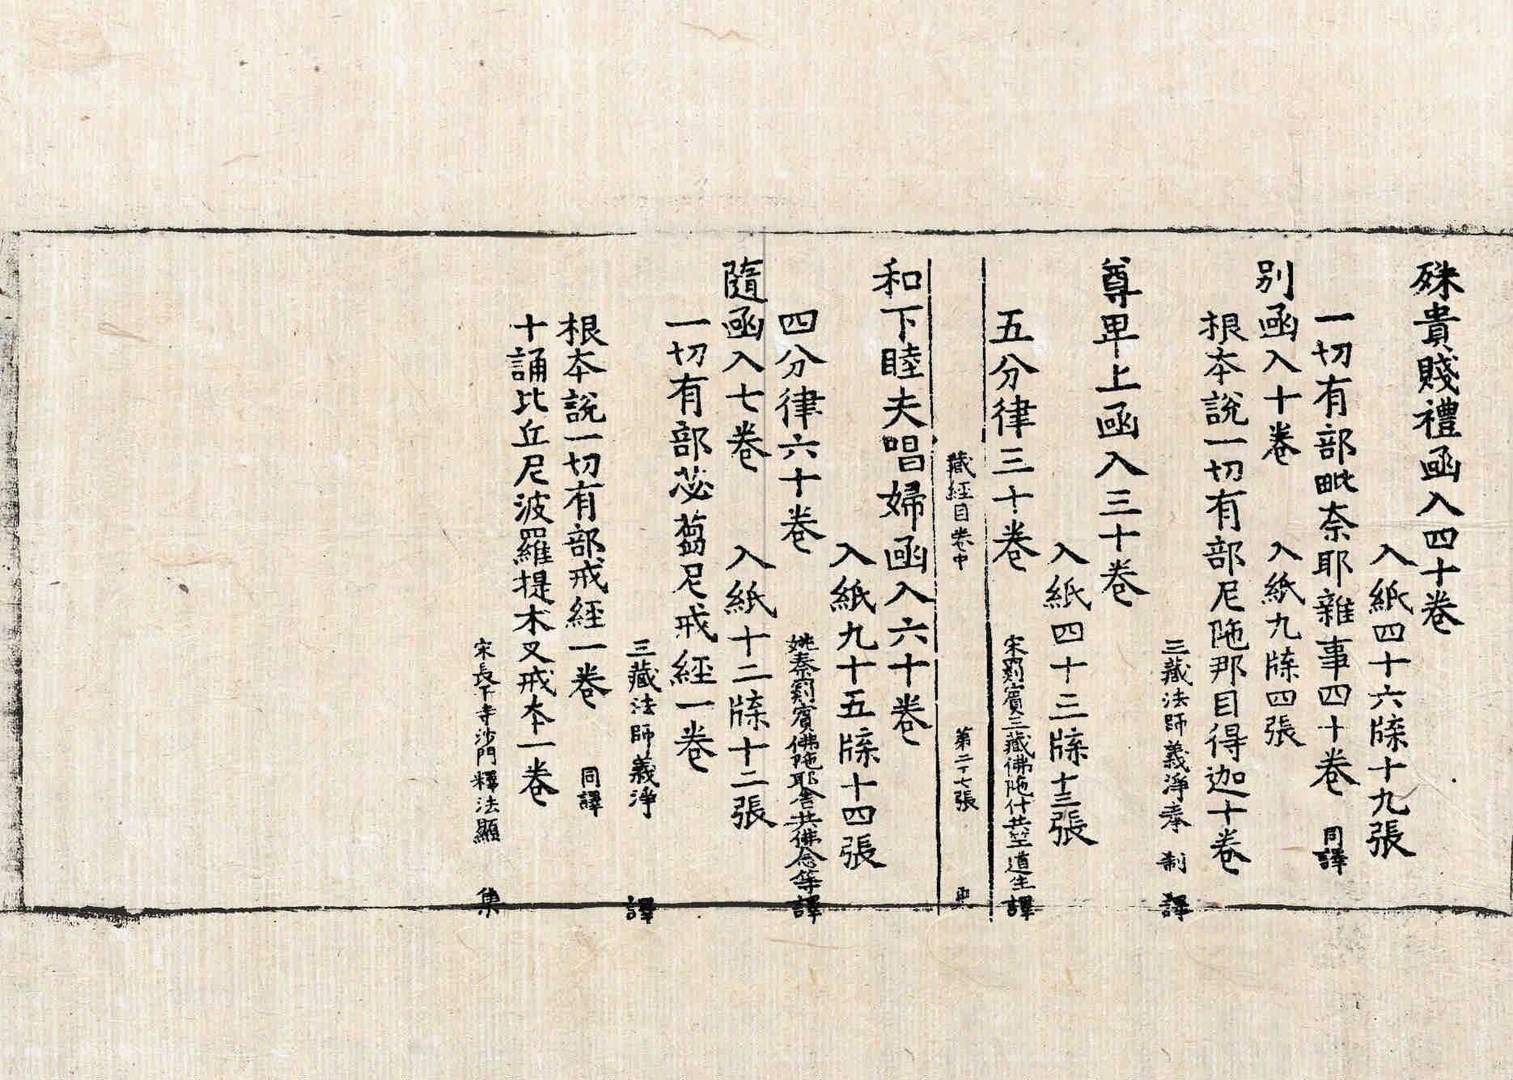 殊貴賤禮函入四十卷
入紙四十六牒十九張
一切有部毗奈耶雜事四十卷 同譯
別函入十卷 入紙九牒四張
根本說一切有部尼陁那目得迦十卷
三藏法師義淨奉 制 譯
尊卑上函入三十卷
入紙四十三牒十三張
五分律三十卷 宋罽賓三藏佛陁什共竺道生譯
藏經目卷中 第二十七張 更
和下睦夫唱婦函入六十卷
入紙九十五牒十四張
四分律六十卷 姚秦罽賓佛陁耶舍共佛念等譯
隨函入七卷 入紙十二牒十二張
一切有部苾蒭尼戒經一卷
三藏法師義淨 譯
根本說一切有部戒經一卷 同譯
十誦比丘尼波羅提木叉戒本一卷
宋長干寺沙門釋法顯 集